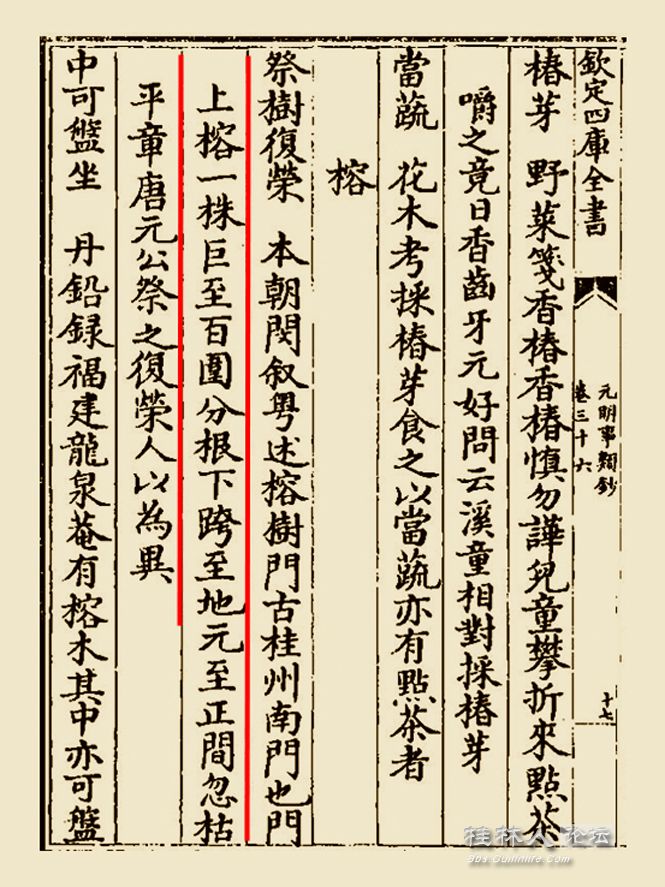 欽定四庫全書
元明事類鈔
卷三十六
十七
椿芽　野菜箋香椿香椿慎勿譁兒童攀折來點茶
嚼之竟日香齒牙元好問云溪童相對採椿芽
當蔬　花木考採椿芽食之以當蔬亦有點茶者
榕
祭樹復榮　本朝閔叙粤述榕樹門古桂州南門也門
上榕一株巨至百圍分根下跨至地元至正間忽枯
平章唐元公祭之復榮人以為異
中可盤坐　丹鉛録福建龍泉菴有榕木其中亦可盤
桂林人论坛
bbs.Guilinlife.Com